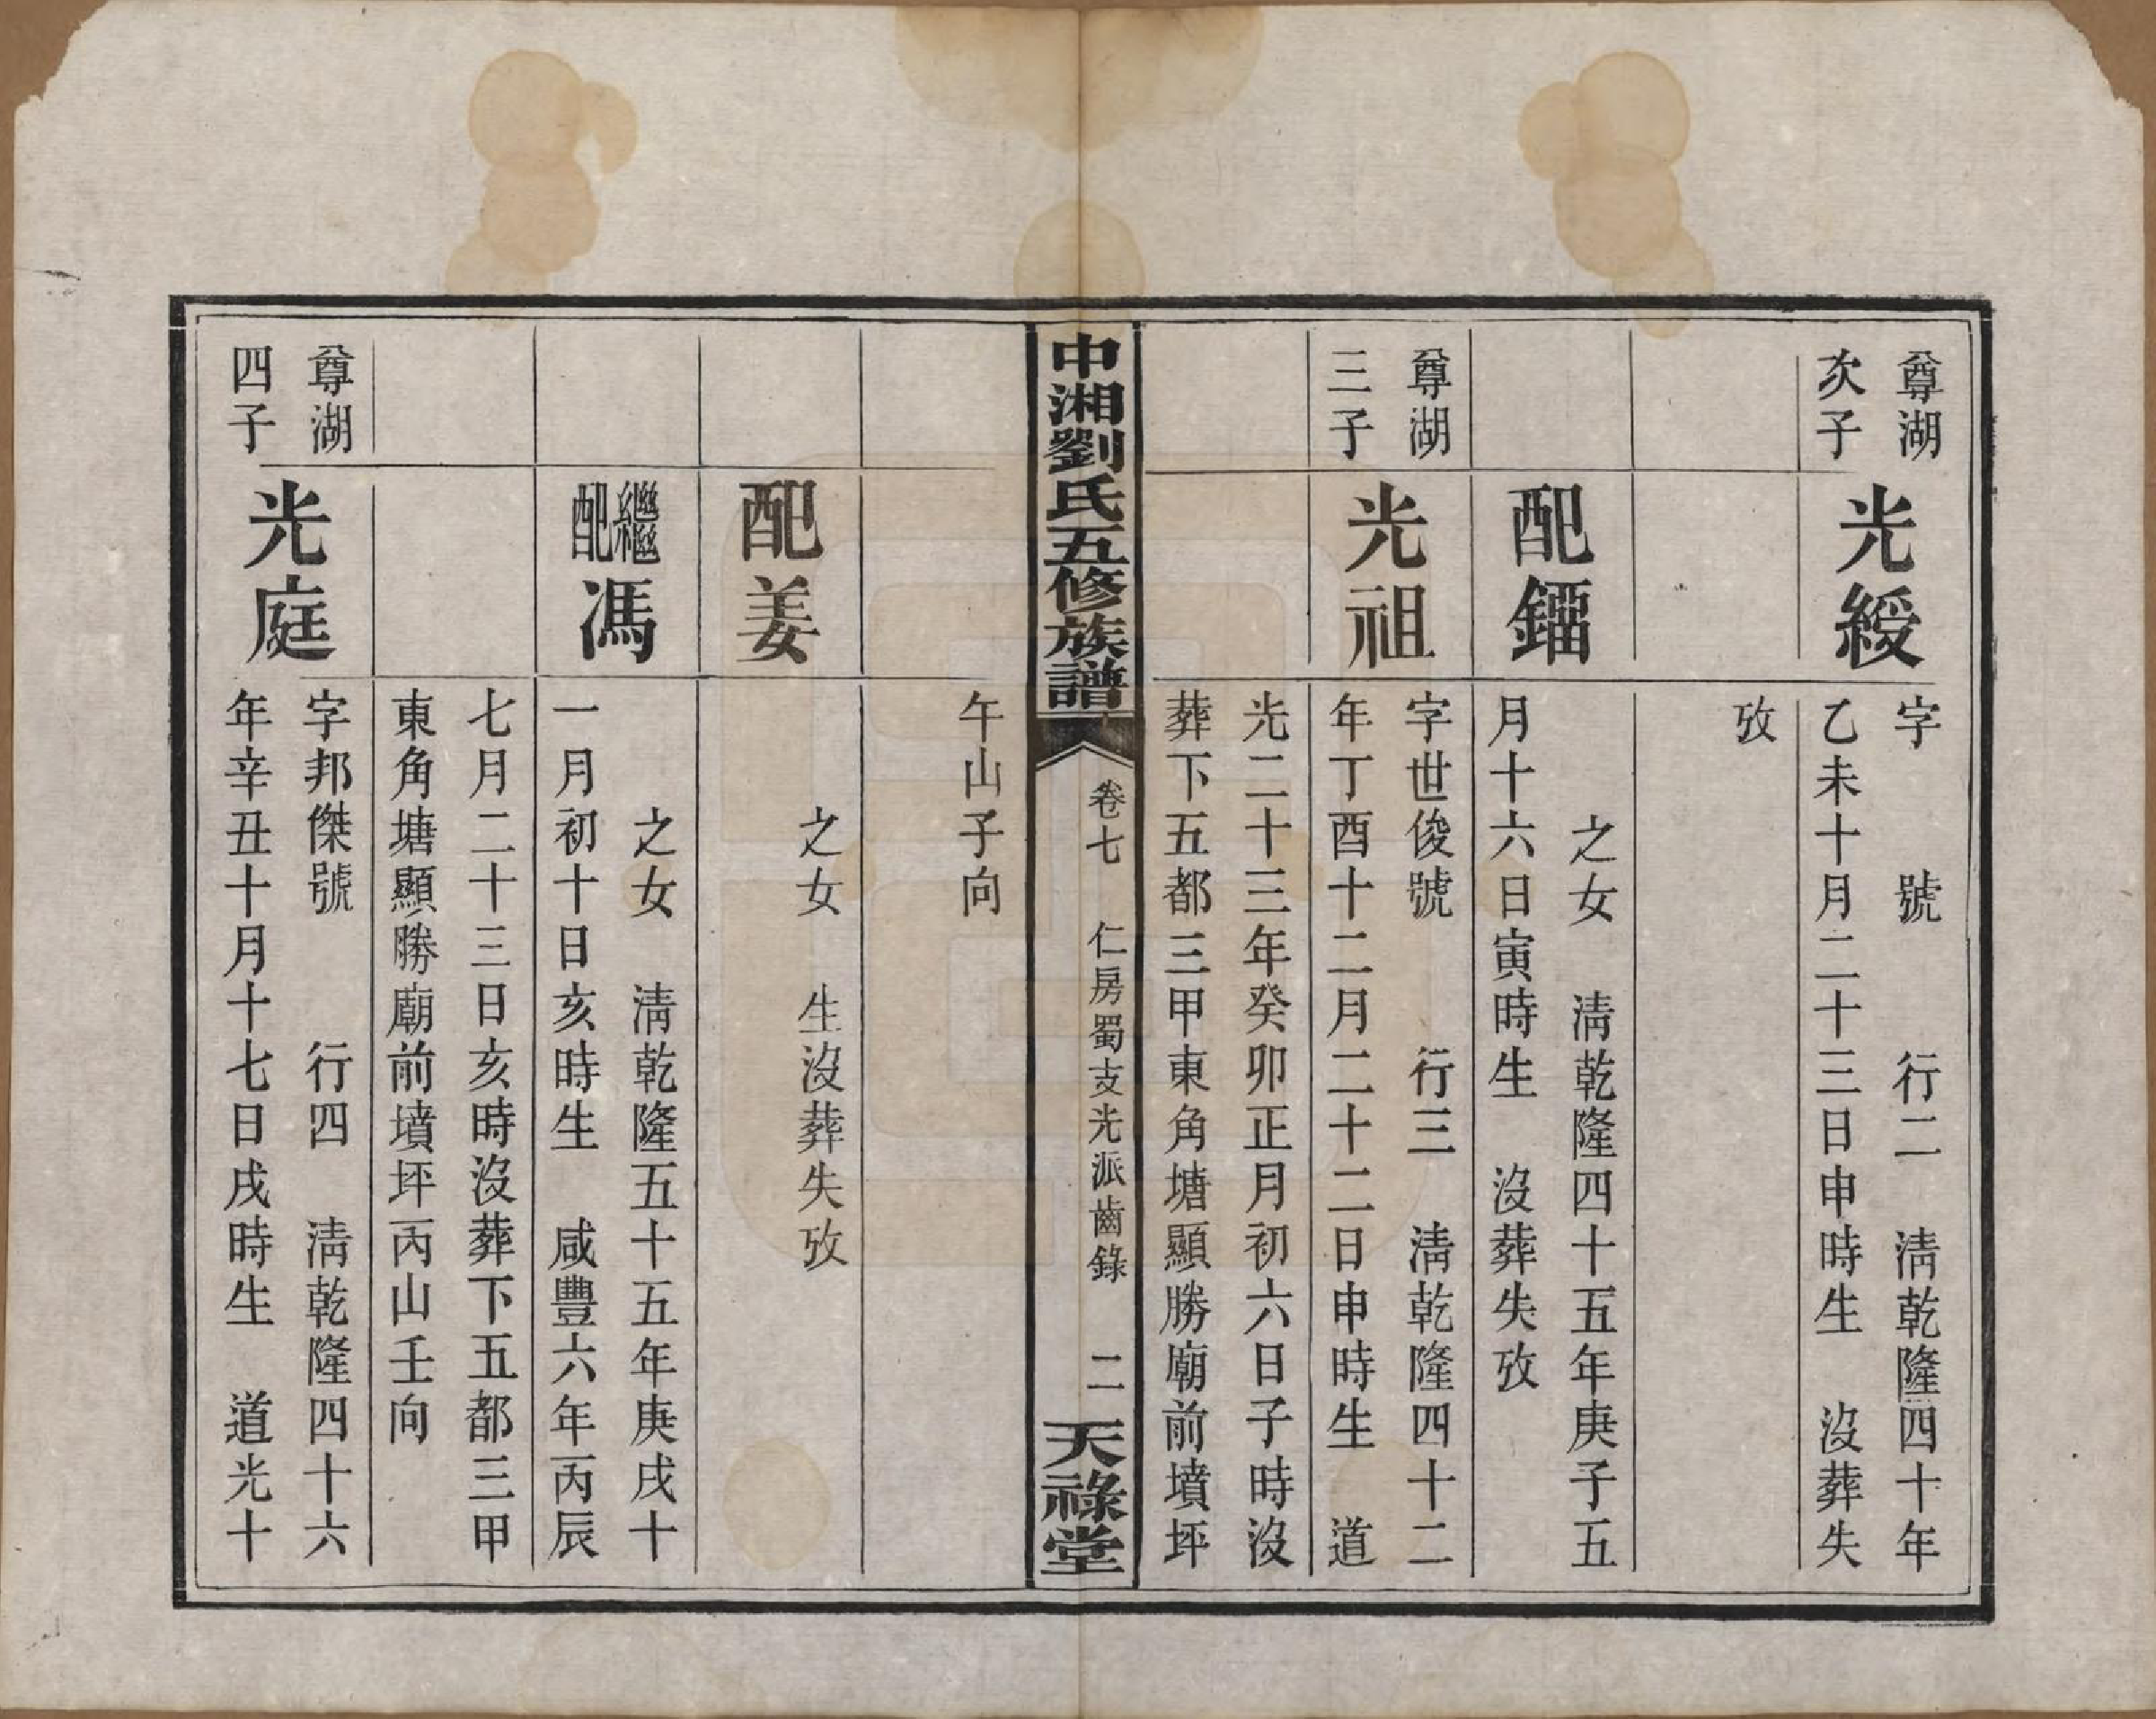 尊湖
次子
光綬
字　號　行二　淸乾隆四十年
乙未十月二十三日申時生　沒葬失
攷
配鎦
之女　淸乾隆四十五年庚子五
月十六日寅時生　沒葬失攷
尊湖
三子
光祖
字世俊號　行三　淸乾隆四十二
年丁酉十二月二十二日申時生　道
光二十三年癸卯正月初六日子時沒
葬下五都三甲東角塘顯勝廟前墳坪
中湘劉氏五修族譜
卷七　仁房蜀支光派齒錄　二
天祿堂
午山子向
配姜
之女　生沒葬失攷
繼配馮
之女　淸乾隆五十五年庚戌十
一月初十日亥時生　咸豐六年丙辰
七月二十三日亥時沒葬下五都三甲
東角塘顯勝廟前墳坪丙山壬向
尊湖
四子
光庭
字邦傑號　行四　淸乾隆四十六
年辛丑十月十七日戌時生　道光十